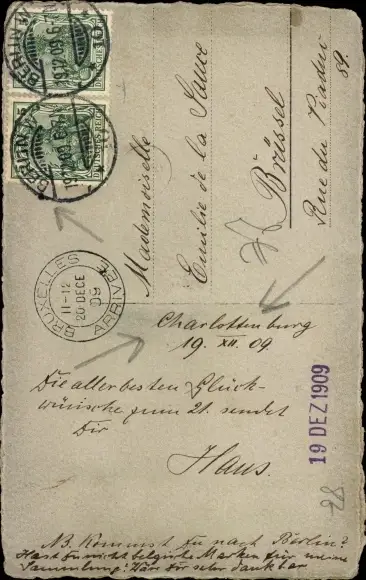 BERLIN
19.12.09.6-7N.
DEUTSCHES REICH
BERLIN
19.12.09.6-7N.
Mademoiselle
Emilie de la Sauce
Brüssel
Rue du Viaduc
89.
BRUXELLES
11-12
20 DECE
09
ARRIVÉE
Charlottenburg
19. XII. 09.
Die allerbesten Glück-
wünsche zum 21. sendet
Dir
Hans.
19 DEZ 1909
NB. Kommst Du nach Berlin?
Hast Du nicht belgische Marken für meine
Sammlung? Wäre Dir sehr dankbar